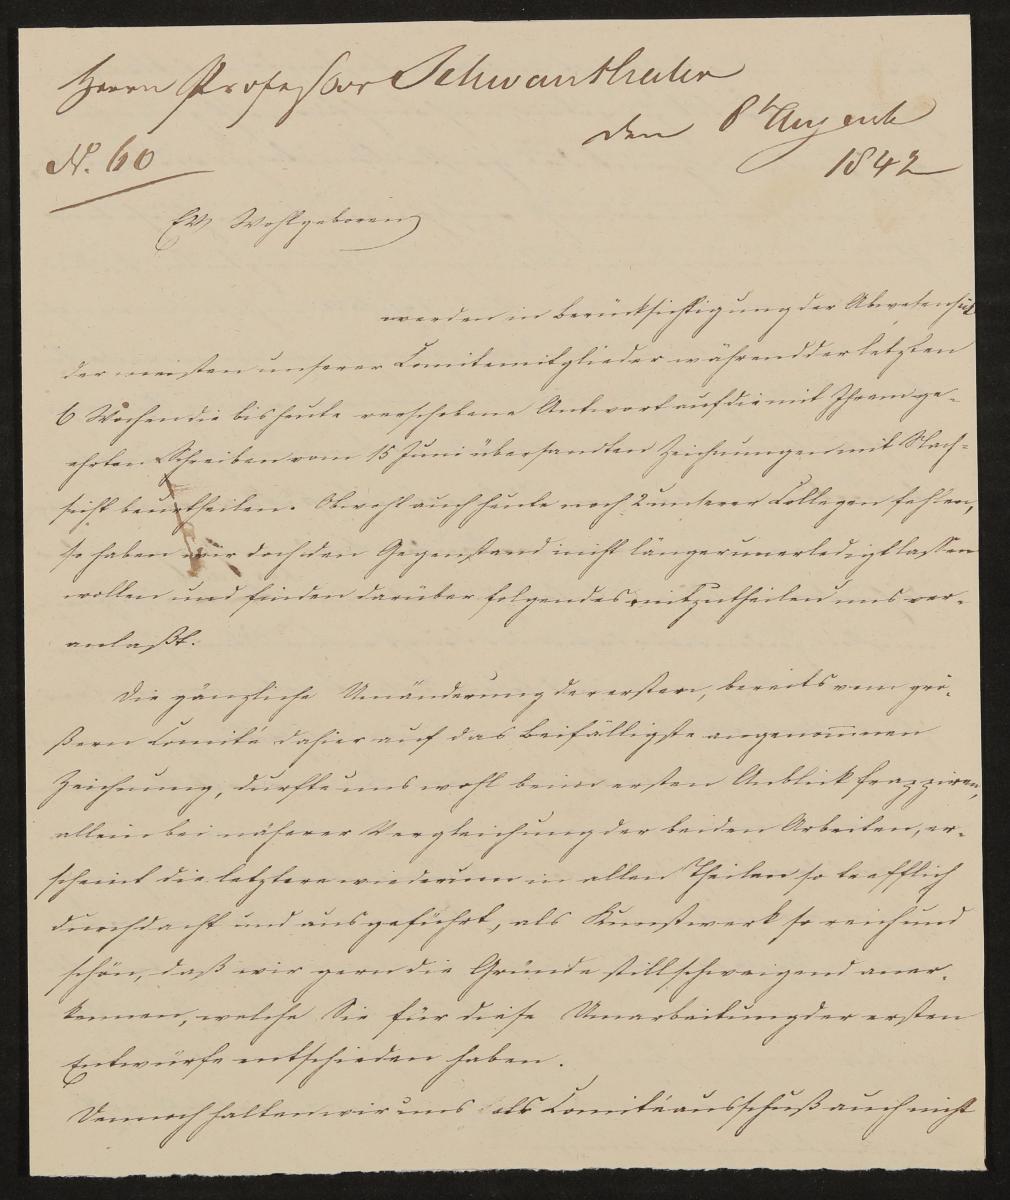 Herrn Professor Schwanthaler
den 8t August
1842
N. 60
Ew Wohlgeboren
werden in Berücksichtigung der Abwesenheit
der meisten unserer Comitemitglieder während der letzten
6 Wochen die bis heute verschobene Antwort auf die mit Ihrem ge-
ehrten Schreiben vom 15 Juni übersandten Zeichnungen mit Nach-
sicht beurtheilen. Obwohl auch heute noch 2 unserer Collegen fehlen,
so haben wir doch den Gegenstand nicht länger unerledigt lassen
wollen und finden darüber folgendes mitzutheilen uns ver-
anlaßt:
Die gänzliche Umänderung der erstern, bereits vom grö-
ßern Comité dahier auf das Beifälligste angenommenen
Zeichnung, durfte uns wohl beim ersten Anblick frappiren,
allein bei näherer Vergleichung der beiden Arbeiten, er-
scheint die letztere wiederum in allen Theilen so trefflich
durchdacht und ausgeführt, als Kunstwerk so reich und
schön, daß wir gern die Gründe stillschweigend aner-
kennen, welche Sie für diese Umarbeitung der ersten
Entwürfe entschieden haben.
Dennoch halten wir uns als Comitéausschuß auch nicht